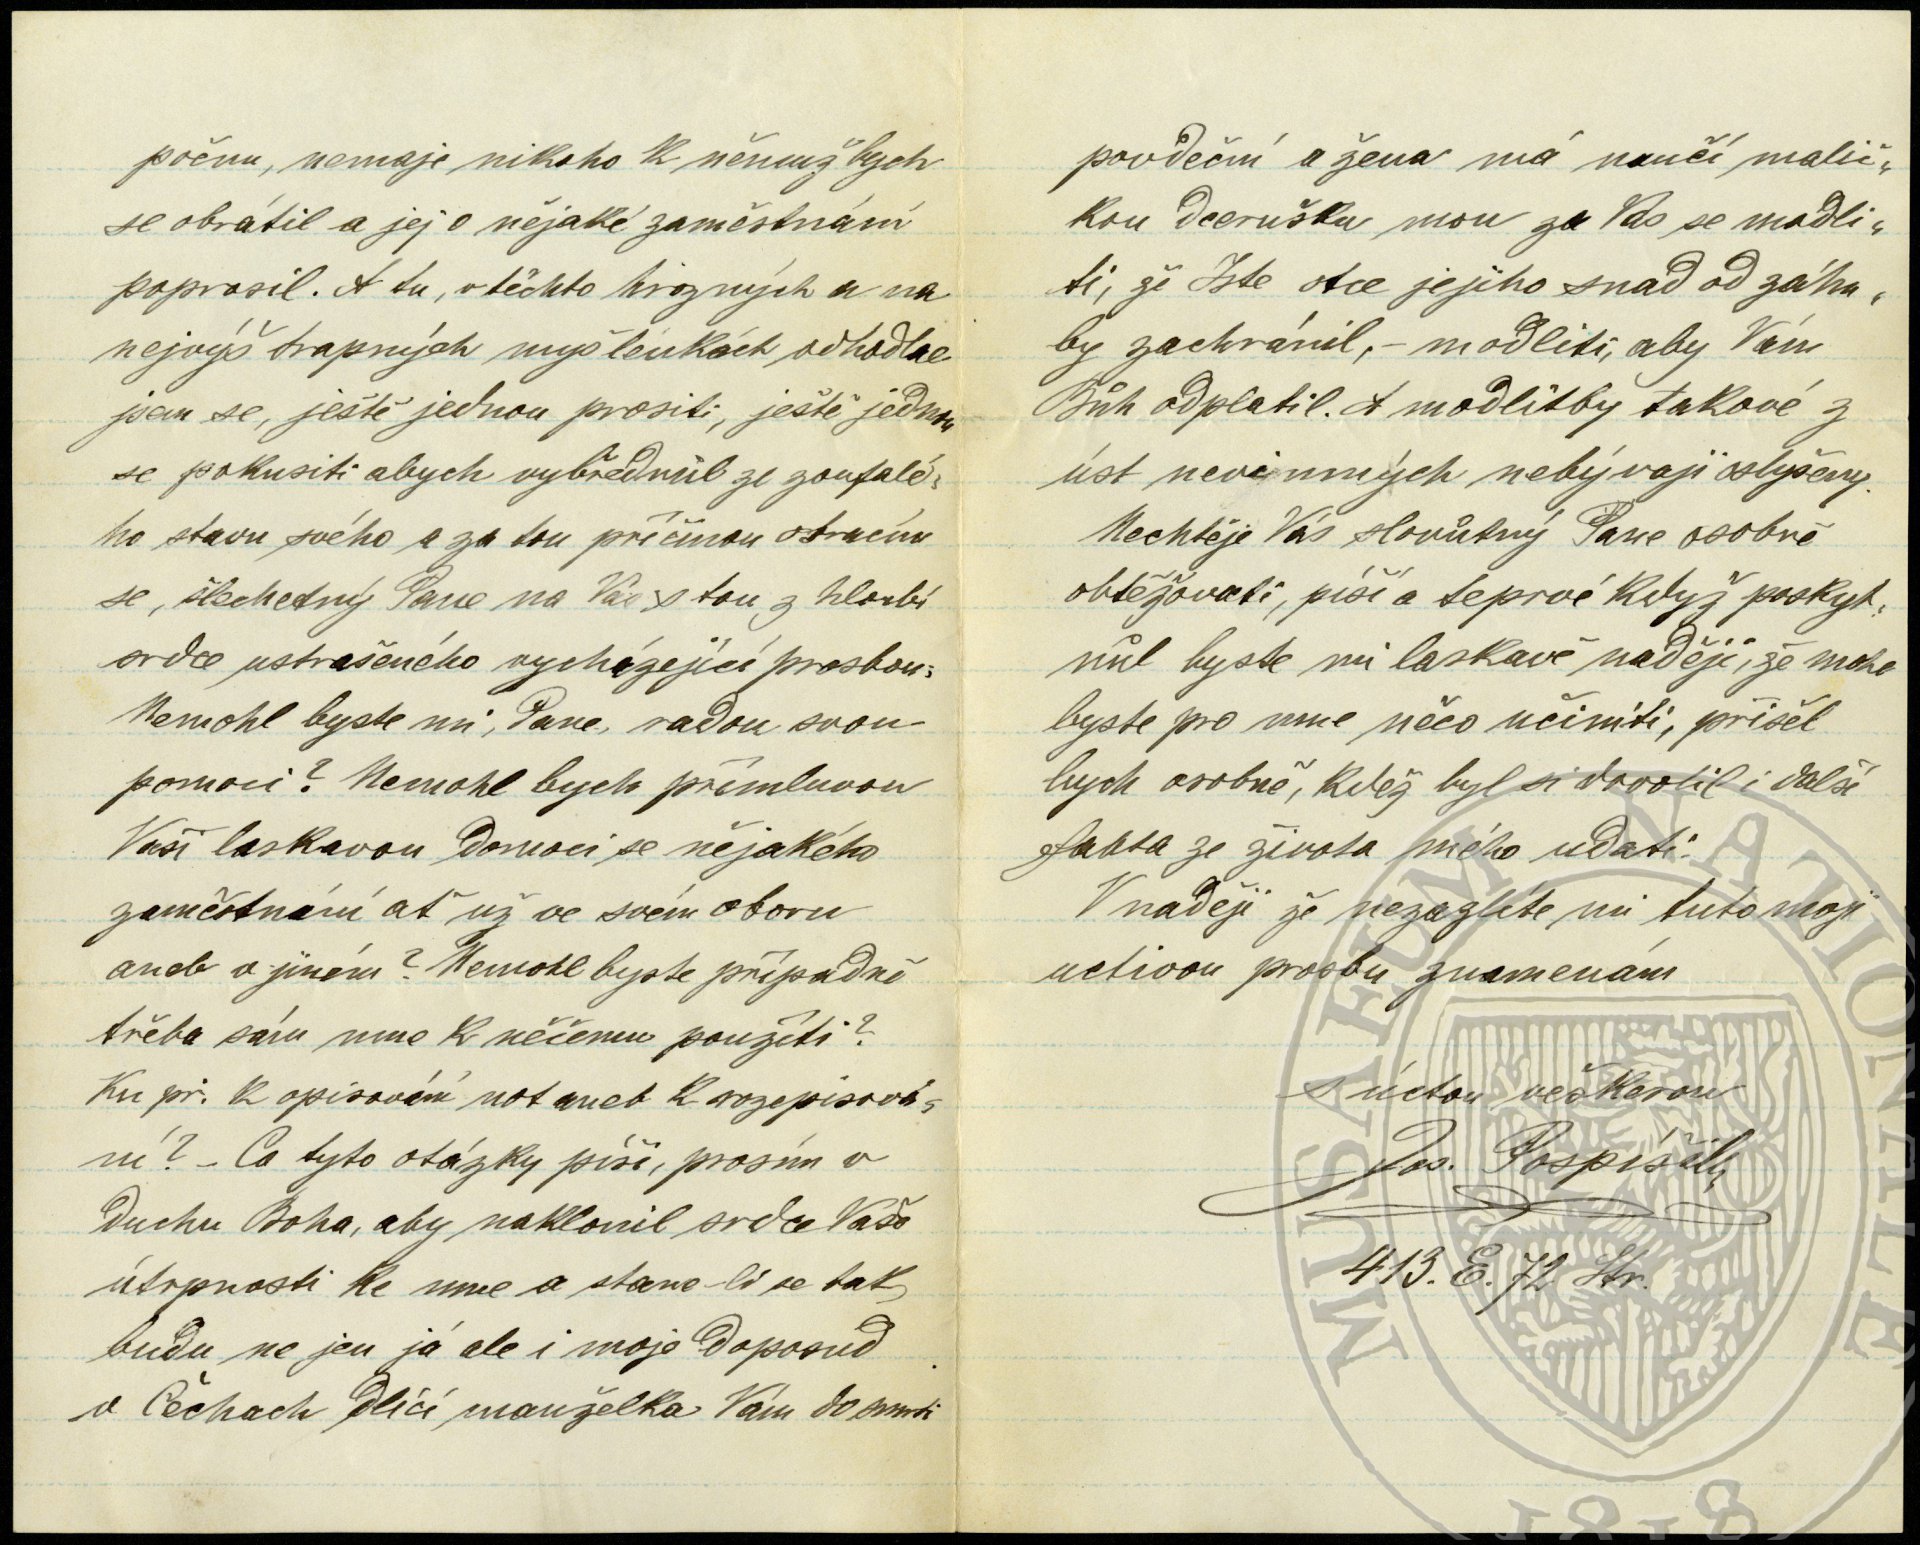 počnu, nemaje nikoho k němuž bych
se obrátil a jej o nějaké zaměstnání
poprosil. A tu, v těchto hrozných a na
nejvýš trapných myšlénkách odhodlal
jsem se, ještě jednou prositi, ještě jednou
se pokusiti abych vybřednül ze zoufalé„
ho stavu svého a za tou příčinou obracím
se, šlechetný Pane na Vás s tou z hloubi
srdce ustrašeného vycházející prosbou:
Nemohl byste mi, Pane, radou svou
pomoci? Nemohl bych přímluvou
Vaší laskavou domoci se nějakého
zaměstnání ať už ve svém oboru
aneb v jiném? Nemohl byste případně
třeba sám mne k něčemu použíti?
Ku př. k opisování not aneb k rozepisová„
ní? – Co tyto otázky píši, prosím v
duchu Boha, aby naklonil srdce Vaše
útrpnosti ke mne a stane-li se tak,
budu ne jen já ale i moje doposud
v Čechách dlící manželka Vám do smrti
povděční a žena má naučí malič„
kou dcerušku mou za Vás se modli„
ti, že Jste otce jejího snad od záhu„
by zachránil, – modliti, aby Vám
Bůh odplatil. A modlitby takové z
úst nevinných nebývají oslyšeny.
Nechtěje Vás slovůtný Pane osobně
obtěžovati, píši a teprvé když poskyt„
nůl byste mi laskavě naději, že moho
byste pro mne něco učiniti, přišel
bych osobně, kdež byl si dovolil i další
fakta ze života mého udati.
V naději že nezazlíte mi tuto moji
uctivou prosbu znamenám
s úctou veškerou
Jos. Pospíšil,
413. E. 72 Str.
MUSAEUM NATIONALE
1818